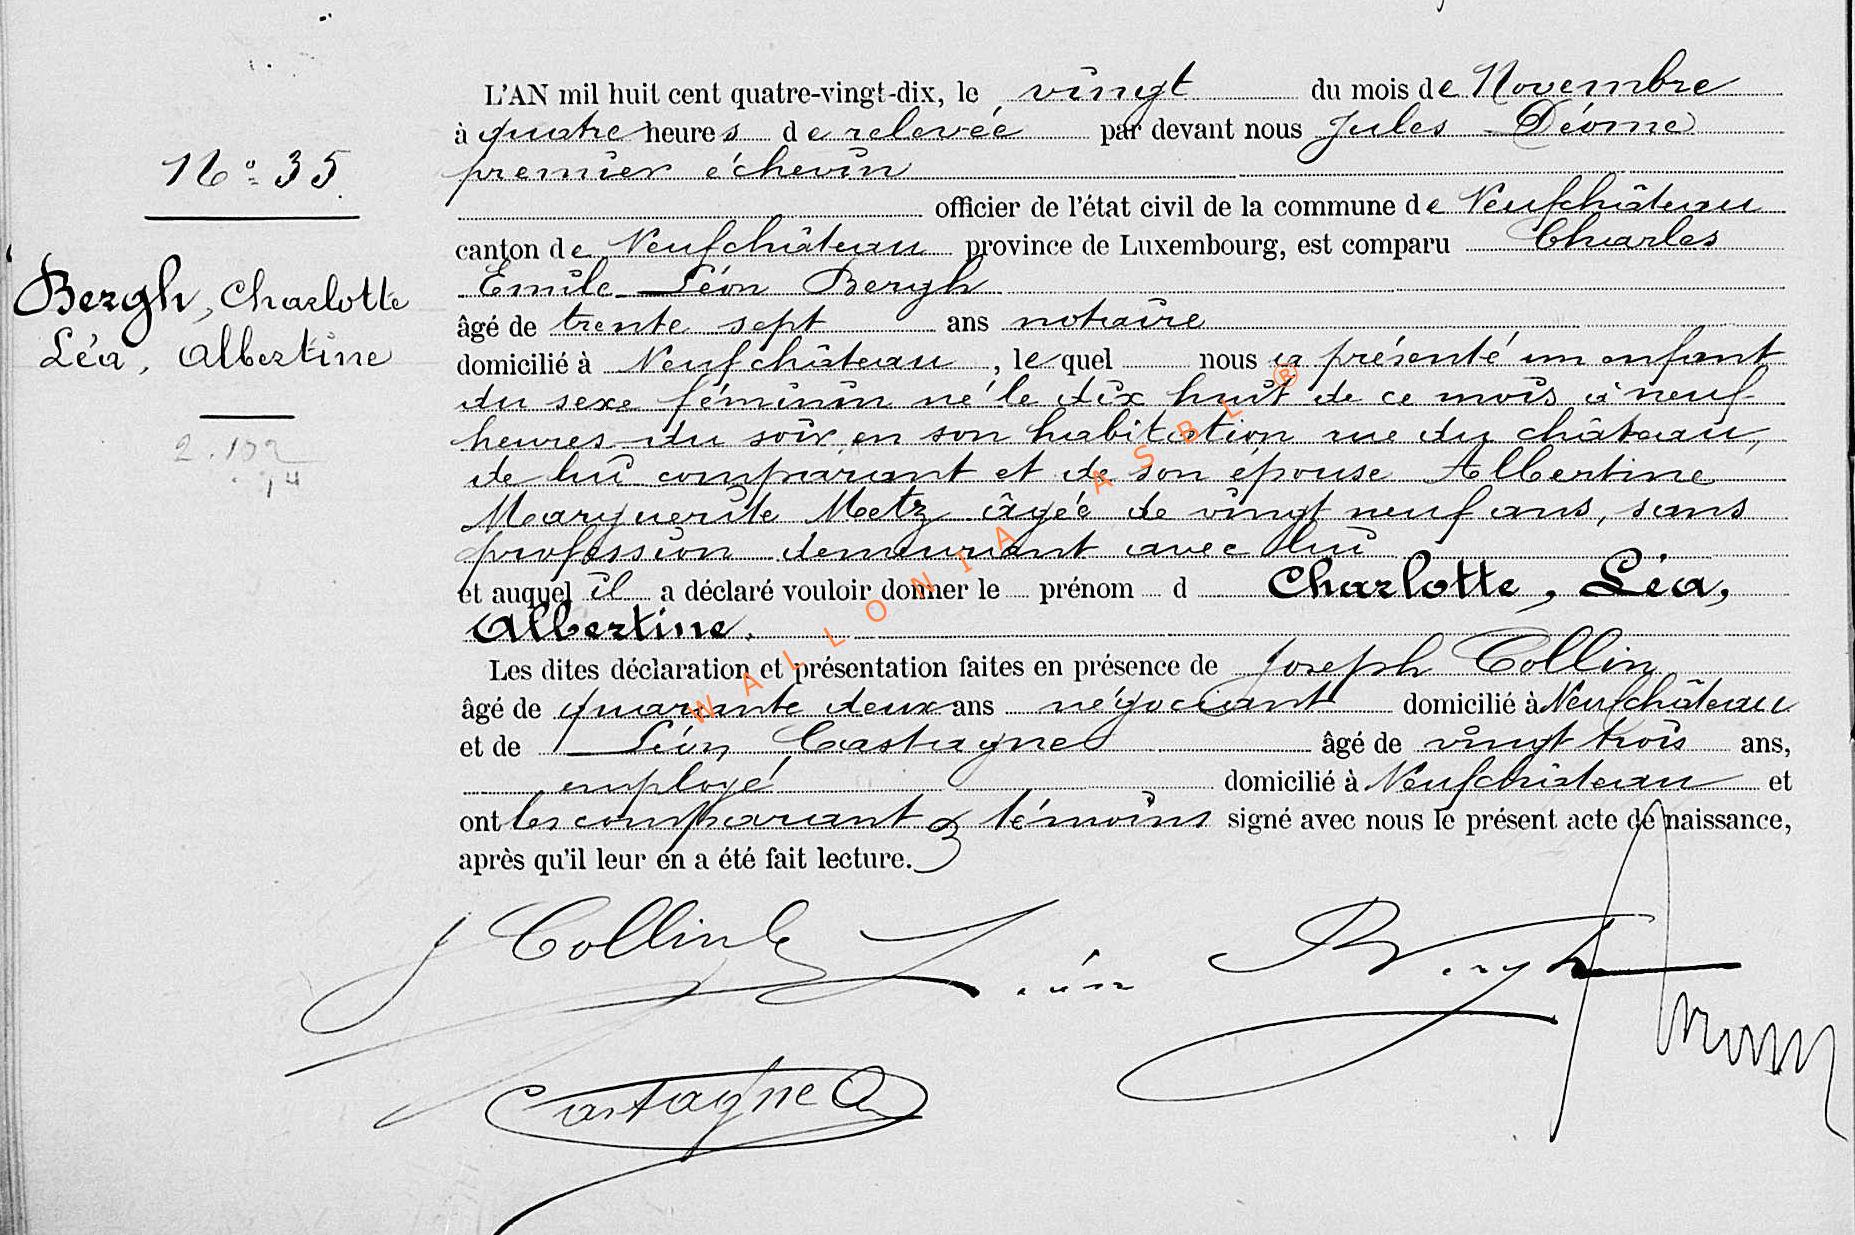 N° 35
Bergh, Charlotte
Léa, Albertine
2.102
14
L'AN mil huit cent quatre-vingt-dix, le vingt du mois de Novembre
à quatre heures de relevée par devant nous Jules Déome
premier échevin
officier de l'état civil de la commune de Neufchâteau
canton de Neufchâteau province de Luxembourg, est comparu Charles
Emile Léon Bergh
âgé de trente sept ans notaire
domicilié à Neufchâteau, lequel nous a présenté un enfant
du sexe féminin né le dix huit de ce mois à neuf
heures du soir en son habitation rue du château,
de lui comparant et de son épouse Albertine
Marguerite Metz âgée de vingt neuf ans, sans
profession demeurant avec lui
et auquel il a déclaré vouloir donner le prénom d Charlotte, Léa,
Albertine.
Les dites déclaration et présentation faites en présence de Joseph Collin
âgé de quarante deux ans négociant domicilié à Neufchâteau
et de Léon Castagne âgé de vingt trois ans,
employé domicilié à Neufchâteau et
ont les comparant & témoins signé avec nous le présent acte de naissance,
après qu'il leur en a été fait lecture.
J Collin Léon Bergh
Castagne
WALLONIA ASBL ®